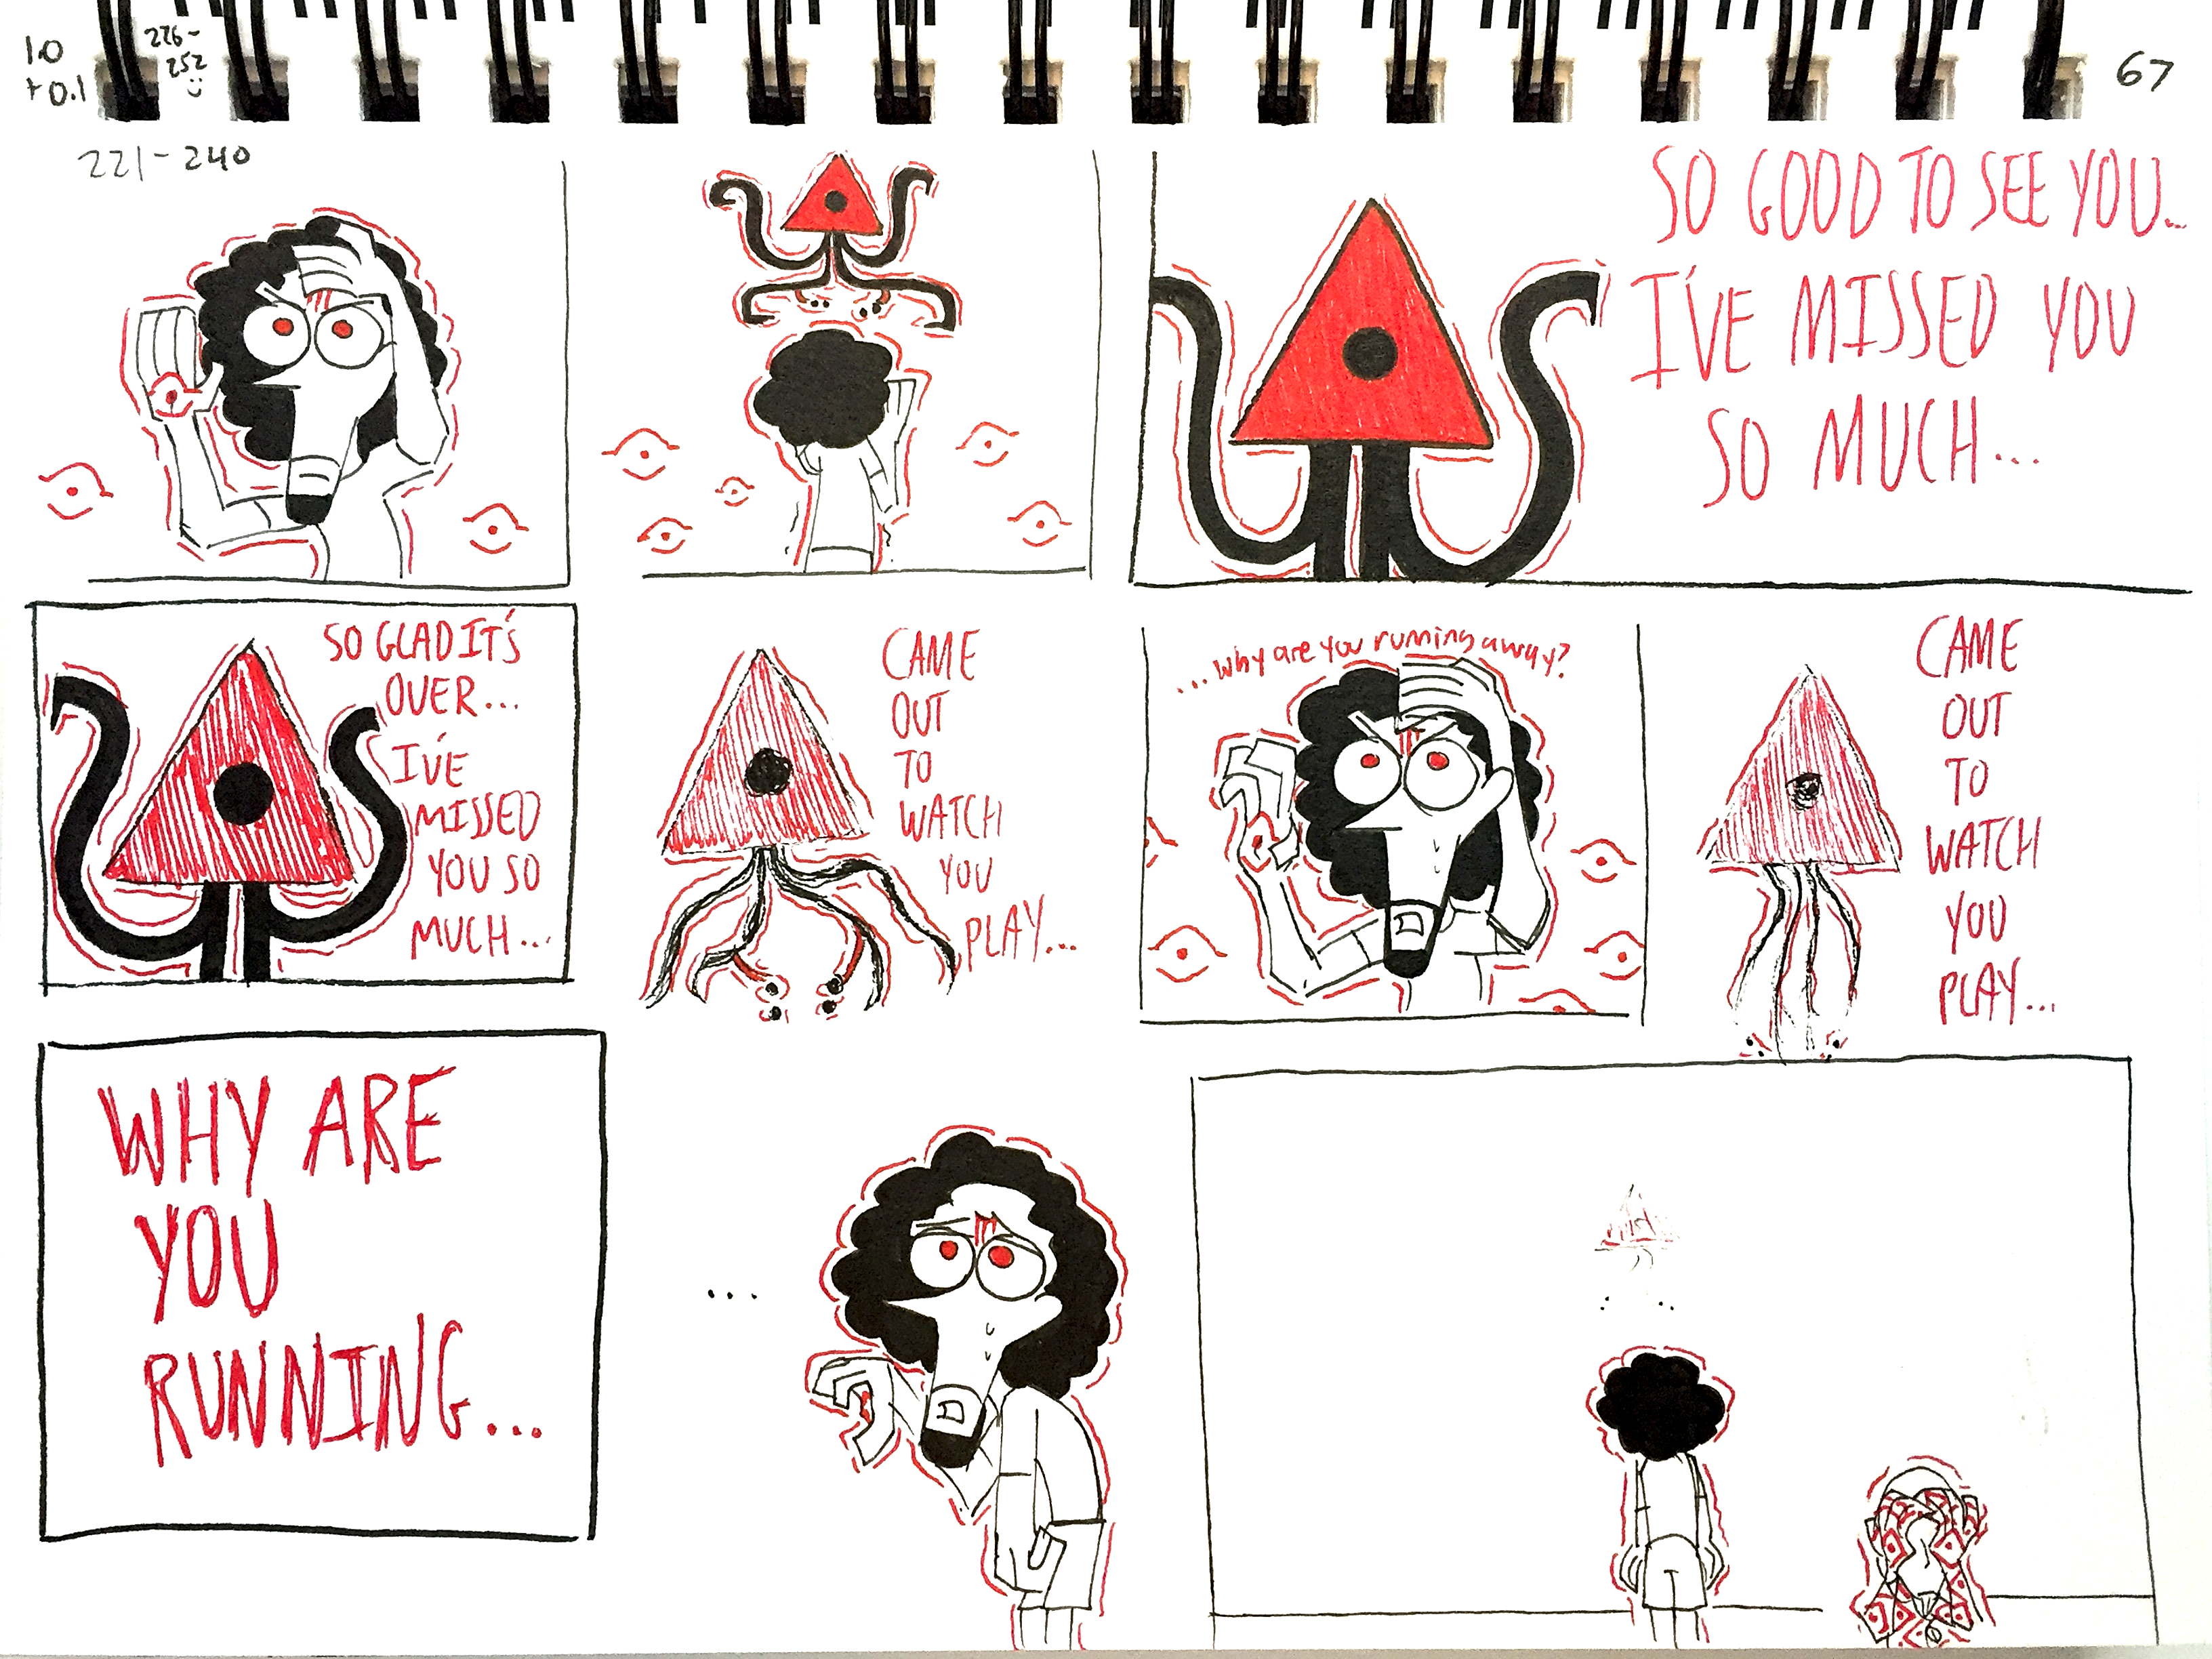 1.0
+0.1
226-
252
:)
67
221-240
SO GOOD TO SEE YOU...
I'VE MISSED YOU
SO MUCH...
SO GLAD IT'S
OVER...
I'VE
MISSED
YOU SO
MUCH...
CAME
OUT
TO
WATCH
YOU
PLAY...
...why are you running away?
CAME
OUT
TO
WATCH
YOU
PLAY...
WHY ARE
YOU
RUNNING...
...